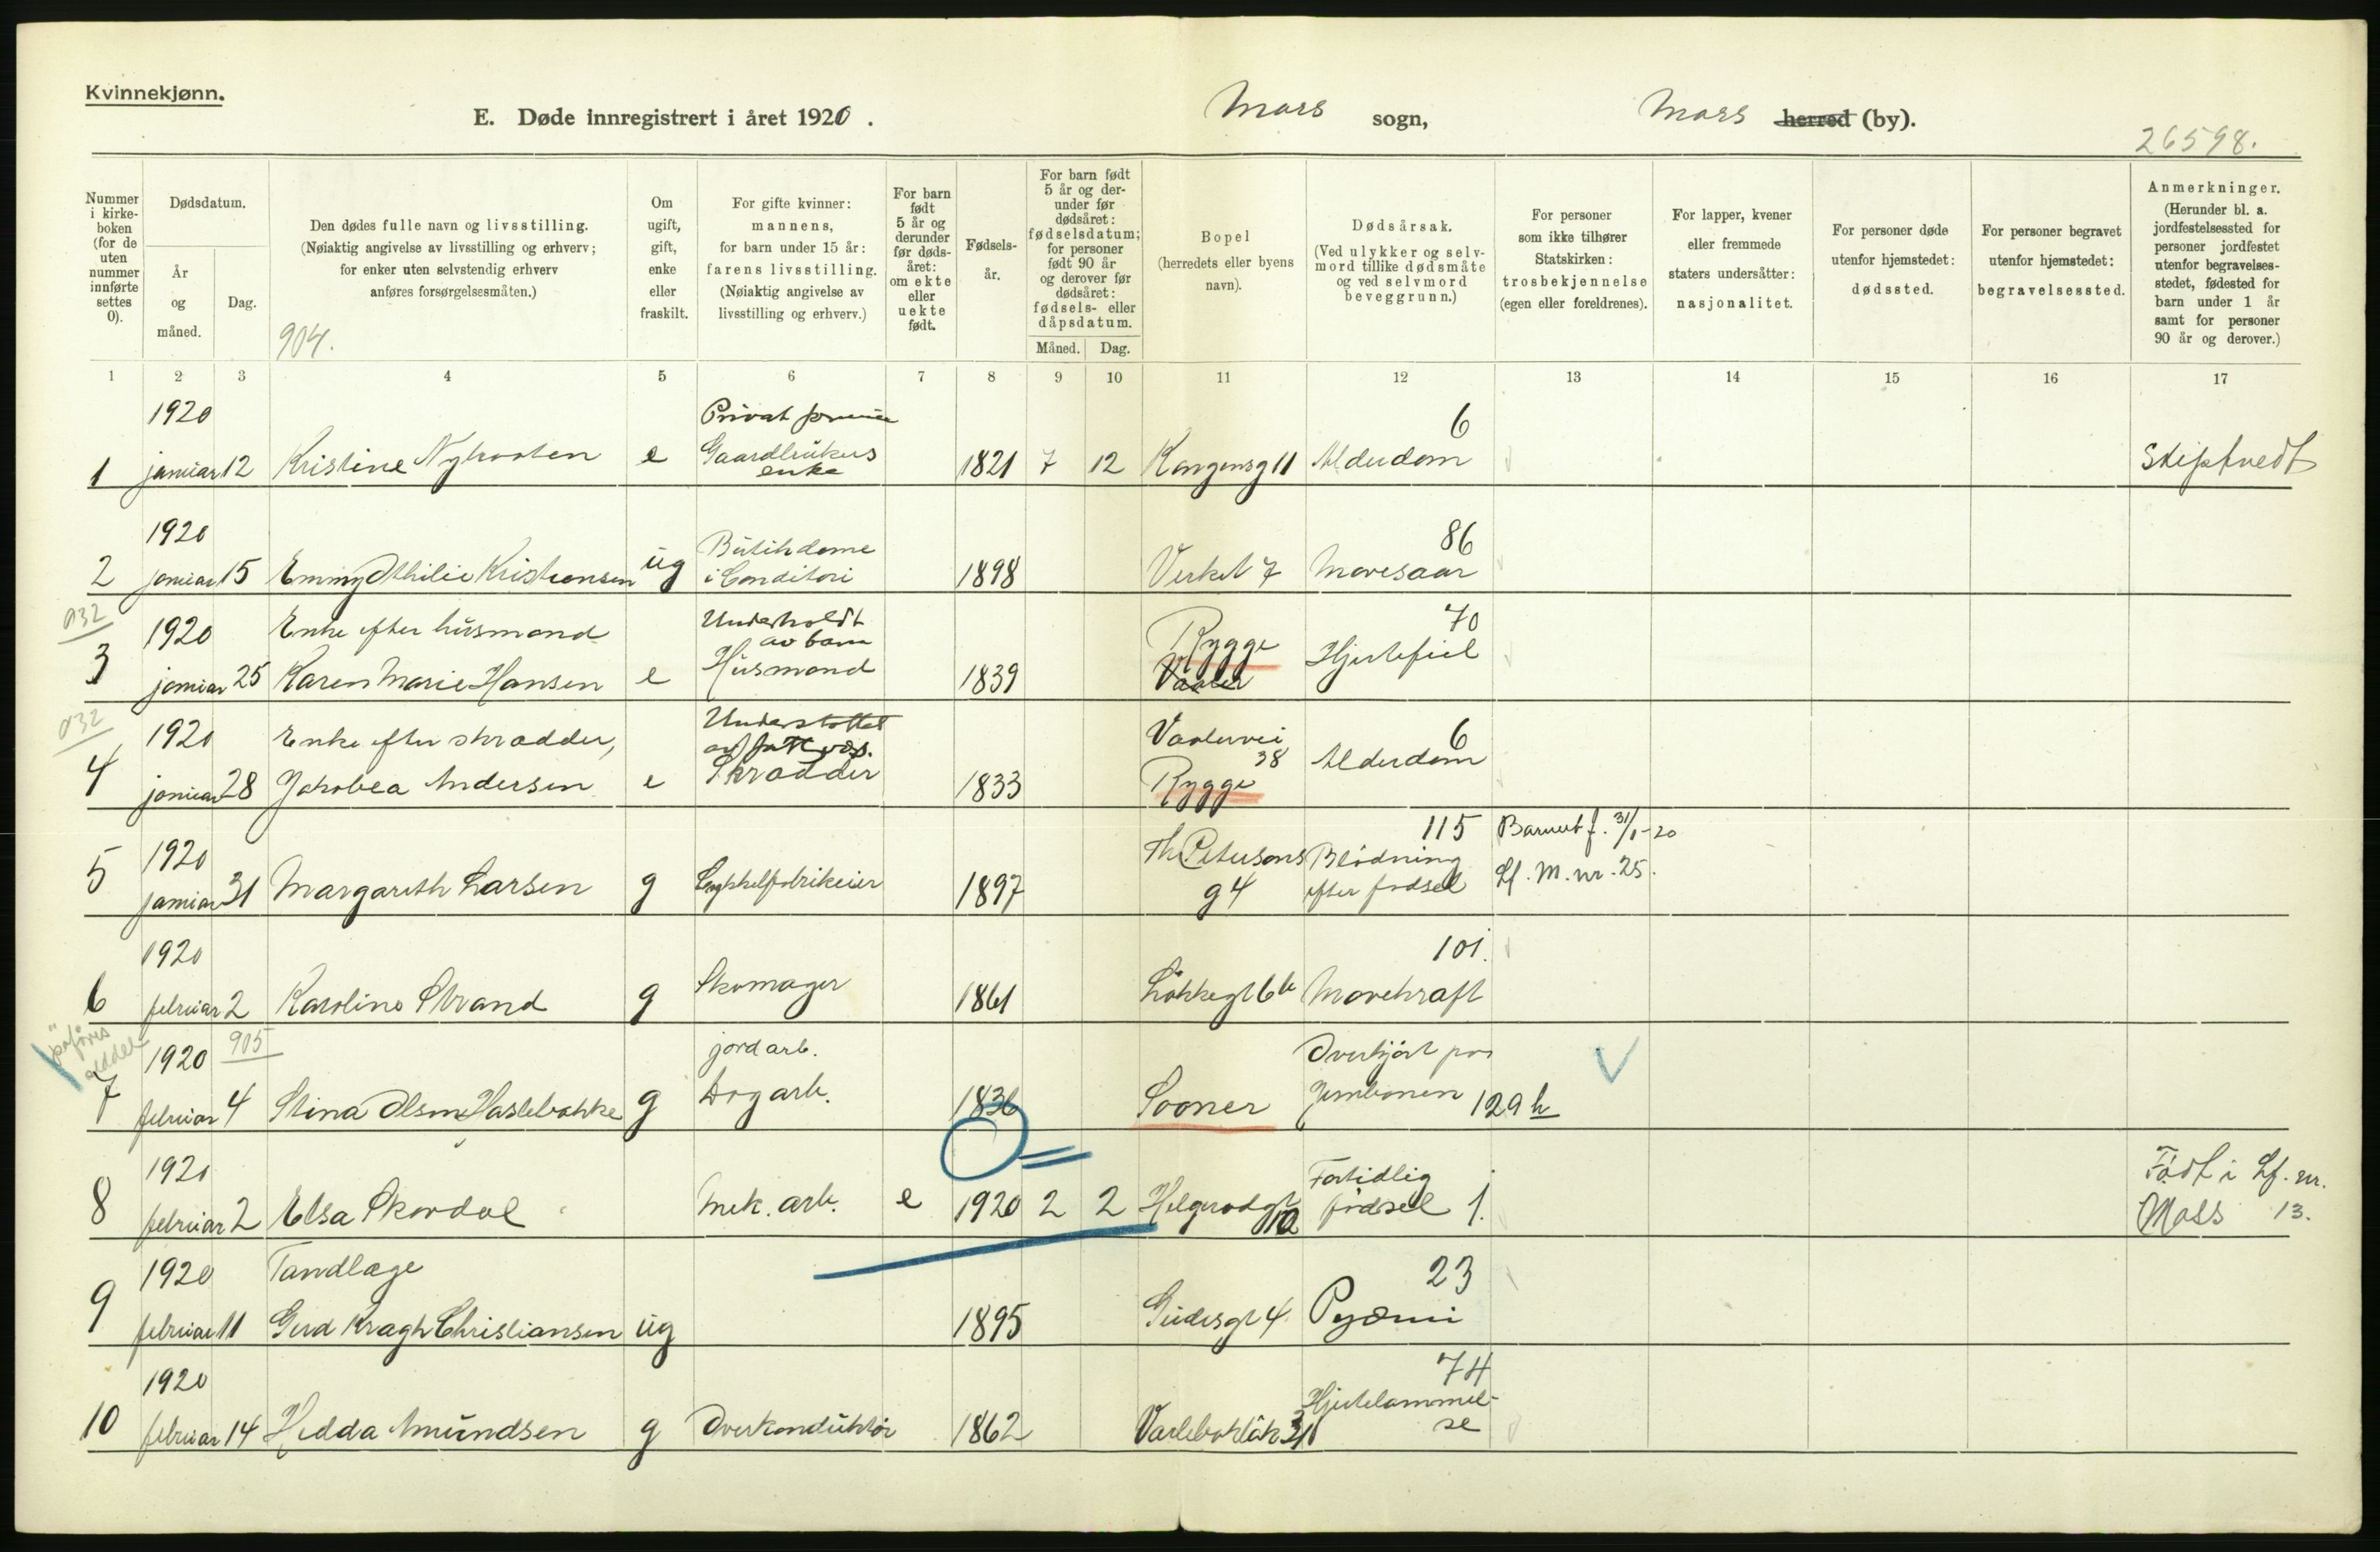 Kvinnekjønn.
E. Døde innregistrert i året 1920.
Moss sogn,
Moss herred (by).
26598.
Nummer i kirkeboken (for de uten nummer innførte settes 0).
Dødsdatum.
År og måned.
Dag.
Den dødes fulle navn og livsstilling.
(Nøiaktig angivelse av livsstilling og erhverv;
for enker uten selvstendig erhverv
anføres forsørgelsesmåten.)
904.
Om ugift, gift, enke eller fraskilt.
For gifte kvinner:
mannens,
for barn under 15 år:
farens livsstilling.
(Nøiaktig angivelse av
livsstilling og erhverv.)
For barn født 5 år og derunder før dødsåret: om ekte eller uekte født.
Fødselsår.
For barn født 5 år og derunder før dødsåret: fødselsdatum; for personer født 90 år og derover før dødsåret: fødsels- eller dåpsdatum.
Måned.
Dag.
Bopel
(herredets eller byens
navn).
Dødsårsak.
(Ved ulykker og selvmord tillike dødsmåte og ved selvmord beveggrunn.)
For personer
som ikke tilhører
Statskirken:
trosbekjennelse
(egen eller foreldrenes).
For lapper, kvener
eller fremmede
staters undersåtter:
nasjonalitet.
For personer døde
utenfor hjemstedet:
dødssted.
For personer begravet
utenfor hjemstedet:
begravelsessted.
Anmerkninger.
(Herunder bl. a.
jordfestelsessted for
personer jordfestet
utenfor begravelses-
stedet, fødested for
barn under 1 år
samt for personer
90 år og derover.)
1 2 3 4 5 6 7 8 9 10 11 12 13 14 15 16 17
1920 Privat 6
1 januar 12 Kristine e Gaardbrukers enke 1821 7 12 Kongensg 11 Alderdom Skiptvedt
1920 86
2 januar 15 Emmy Othilie Kristiansen ug Butikdame i Conditori 1898 Verket 7 Mavesaar
932
1920 Enke efter husmand Underholdt av barn Rygge 70
3 januar 25 Karen Marie Hansen e Husmand 1839 Vaaler Hjertefeil
932
1920 Enke efter skrædder, Understøttet af fattigv. Vaalervei 38 6
4 januar 28 Jakobea Andersen e Skrædder 1833 Rygge Alderdom
1920 115 Barnet f. 31/1-20
5 januar 31 Margareth Larsen g 1897 Th Petersons g 4 Blødning efter fødsel Lf. M. nr. 25.
1920 101.
6 februar 2 Karoline Strand g Skomager 1861 Løkkegt 6b Mavekræft
påføres
1920 905 jordarb. Overkjørt paa
7 februar 4 Stina Olsen Haslebakke g Dagarb. 1836 Sooner Jernbanen 129 h
1920 Fortidlig Født i Lf. nr.
8 februar 2 Elsa Skovdal mek. arb. e 1920 2 2 Helgerødgt fødsel 1. Moss 13.
1920 Tandlæge 23
9 februar 11 Gerd Kragh Christiansen ug 1895 Gudesgt 4 Pyæmi
1920 74
10 februar 14 Hedda Amundsen g Overkonduktør 1862 Hjertelammelse